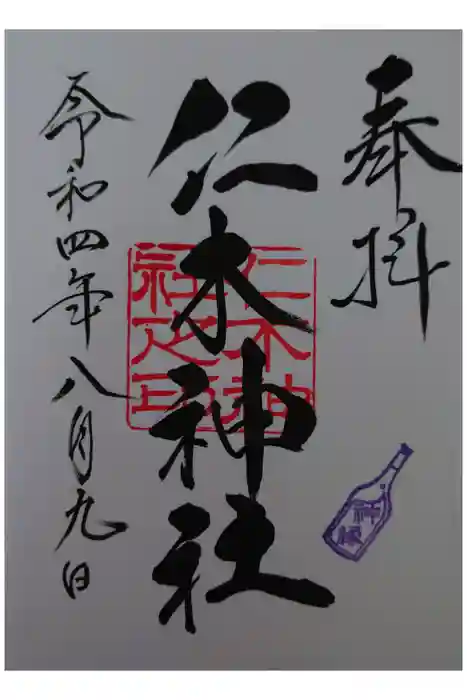 奉拝
仁木神社
仁木神
社之印
令和四年八月九日